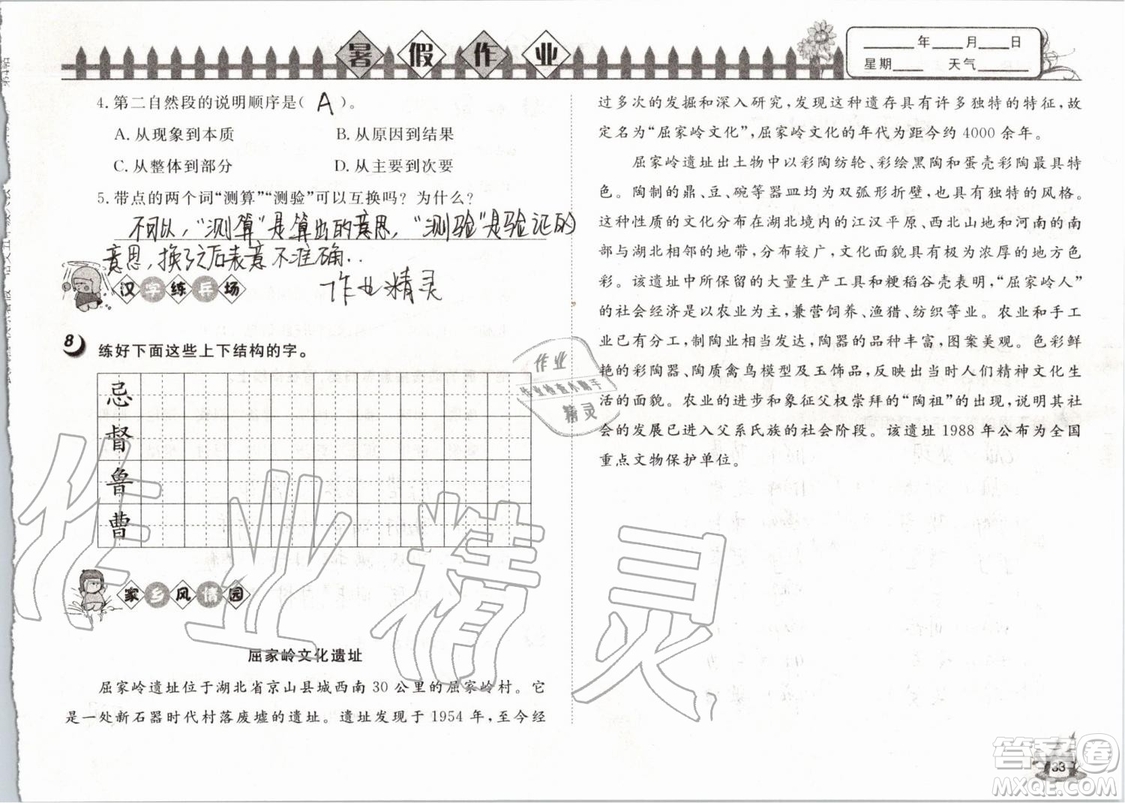 暑假作业
____年____月____日
星期____ 天气____
4. 第二自然段的说明顺序是( A )。
A. 从现象到本质 B. 从原因到结果
C. 从整体到部分 D. 从主要到次要
5. 带点的两个词“测算”“测验”可以互换吗？为什么？
不可以，“测算”是算出的意思，“测验”是验证的
意思，换了之后表意不准确..
作业精灵
汉字练兵场
8 练好下面这些上下结构的字。
忌
督
鲁
曹
家乡风情园
屈家岭文化遗址
屈家岭遗址位于湖北省京山县城西南 30 公里的屈家岭村。它
是一处新石器时代村落废墟的遗址。遗址发现于 1954 年，至今经
过多次的发掘和深入研究，发现这种遗存具有许多独特的特征，故
定名为“屈家岭文化”，屈家岭文化的年代为距今约 4000 余年。
屈家岭遗址出土物中以彩陶纺轮、彩绘黑陶和蛋壳彩陶最具特
色。陶制的鼎、豆、碗等器皿均为双弧形折壁，也具有独特的风格。
这种性质的文化分布在湖北境内的江汉平原、西北山地和河南的南
部与湖北相邻的地带，分布较广，文化面貌极为浓厚的地方色
彩。该遗址中所保留的大量生产工具和粳稻谷壳表明，“屈家岭人”
的社会经济以农业为主，兼营饲养、渔猎、纺织等业。农业和手工
业已有分工，制陶业兴盛，陶器的品种丰富，图案美观。色彩鲜
艳的彩陶器、陶质禽鸟模型及玉饰品，反映了当时人们精神文化生
活的面貌。农业的进步和象征父权崇拜的“陶祖”的出现，说明其社
会的发展已进入父系氏族的社会阶段。该遗址 1988 年公布为全国
重点文物保护单位。
作业
作业检查小助手
精灵
作业精灵
33
答案圈
MXQE.COM